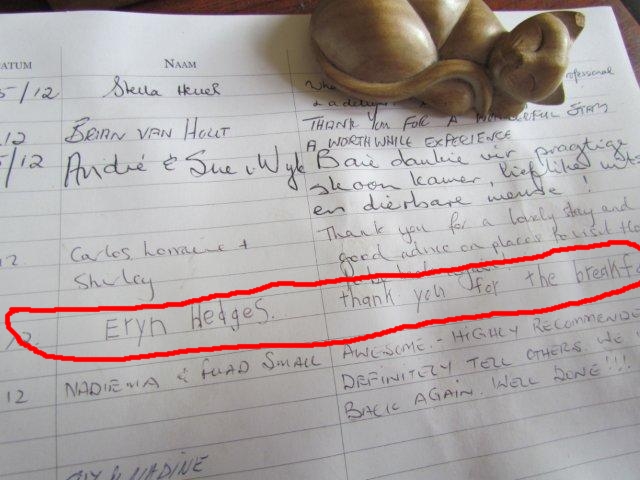 ATUM NAAM
5/12 Sheila Heuer professional
& a
12 BRIAN VAN HOUT THANK YOU FOR A WONDERFUL STAY
A WORTHWHILE EXPERIENCE
5/12 André & Sue v Wyk Baie dankie vir pragtige
skoon kamer, lieflike
en dierbare mense!
Thank you for a lovely stay and
12 Carlos Lorraine + good advice on places to visit
Shirley
12 Eryn Hedges. thank you for the breakf
NADIEMA & FUAD SMALL AWESOME - HIGHLY RECOMMENDE
12 DEFINITELY TELL OTHERS. WE
BACK AGAIN. WELL DONE!!!
& NADINE